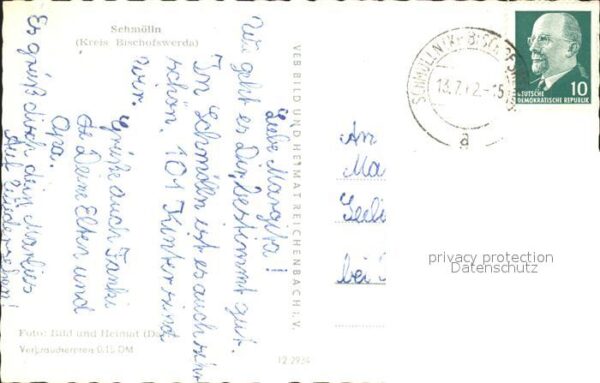 Schmölln
(Kreis Bischofswerda)
Liebe Margitta!
Wie geht es Dir, bestimmt gut.
In Schmölln ist es auch sehr
schön. 101 Kinter sind
wir.
Grüße auch Tanki
Deine Eltern und
Opa.
Es grüß dich dein Marlies
Auf Wiedersehen!
Foto: Bild und Heimat
Verbraucherpreis 0,15 DM
VEB BILD UND HEIMAT REICHENBACH i. V.
12 2934
SCHMÖLLN
13.7.
a
10
DEUTSCHE
DEMOKRATISCHE REPUBLIK
An
Ma
bei
privacy protection
Datenschutz